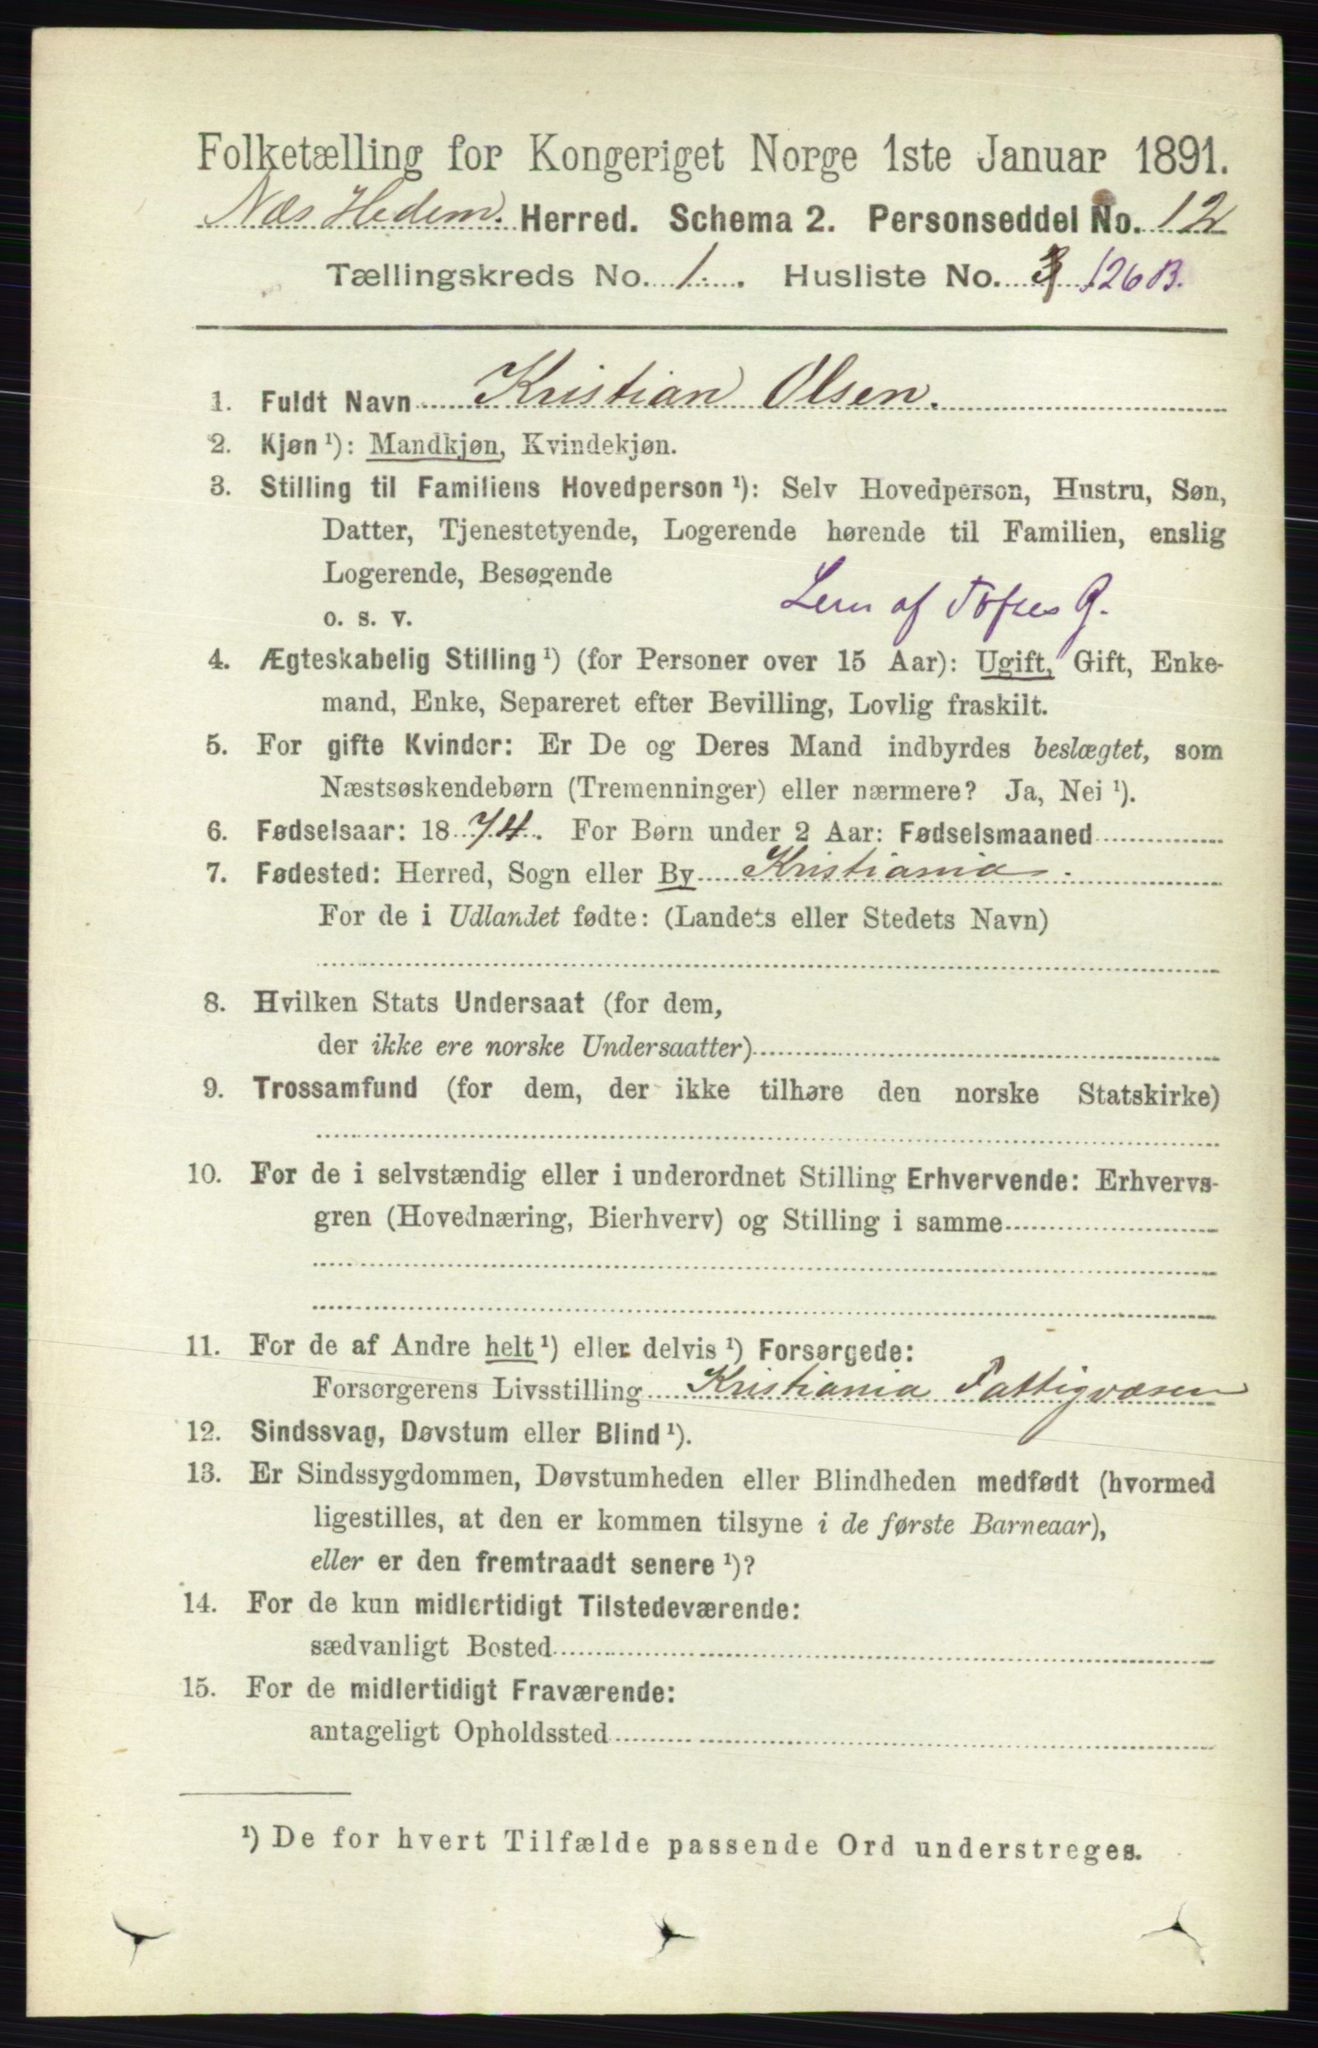 Folketælling for Kongeriget Norge 1ste Januar 1891.
Næs Hedem. Herred. Schema 2. Personseddel No. 12
Tællingskreds No. 1. Husliste No. 3 126 B.
1. Fuldt Navn Kristian Olsen.
2. Kjøn ¹): Mandkjøn, Kvindekjøn.
3. Stilling til Familiens Hovedperson ¹): Selv Hovedperson, Hustru, Søn,
Datter, Tjenestetyende, Logerende hørende til Familien, enslig
Logerende, Besøgende
o. s. v. Lem af Toftes G.
4. Ægteskabelig Stilling ¹) (for Personer over 15 Aar): Ugift, Gift, Enke-
mand, Enke, Separeret efter Bevilling, Lovlig fraskilt.
5. For gifte Kvinder: Er De og Deres Mand indbyrdes beslægtet, som
Næstsøskendebørn (Tremenninger) eller nærmere? Ja, Nei ¹).
6. Fødselsaar: 1874. For Børn under 2 Aar: Fødselsmaaned
7. Fødested: Herred, Sogn eller By Kristiania.
For de i Udlandet fødte: (Landets eller Stedets Navn)
8. Hvilken Stats Undersaat (for dem,
der ikke ere norske Undersaatter)
9. Trossamfund (for dem, der ikke tilhøre den norske Statskirke)
10. For de i selvstændig eller i underordnet Stilling Erhvervende: Erhvervs-
gren (Hovednæring, Bierhverv) og Stilling i samme
11. For de af Andre helt ¹) eller delvis ¹) Forsørgede:
Forsørgerens Livsstilling Kristiania Fattigvæsen
12. Sindssvag, Døvstum eller Blind ¹).
13. Er Sindssygdommen, Døvstumheden eller Blindheden medfødt (hvormed
ligestilles, at den er kommen tilsyne i de første Barneaar),
eller er den fremtraadt senere ¹)?
14. For de kun midlertidigt Tilstedeværende:
sædvanligt Bosted
15. For de midlertidigt Fraværende:
antageligt Opholdssted
¹) De for hvert Tilfælde passende Ord understreges.